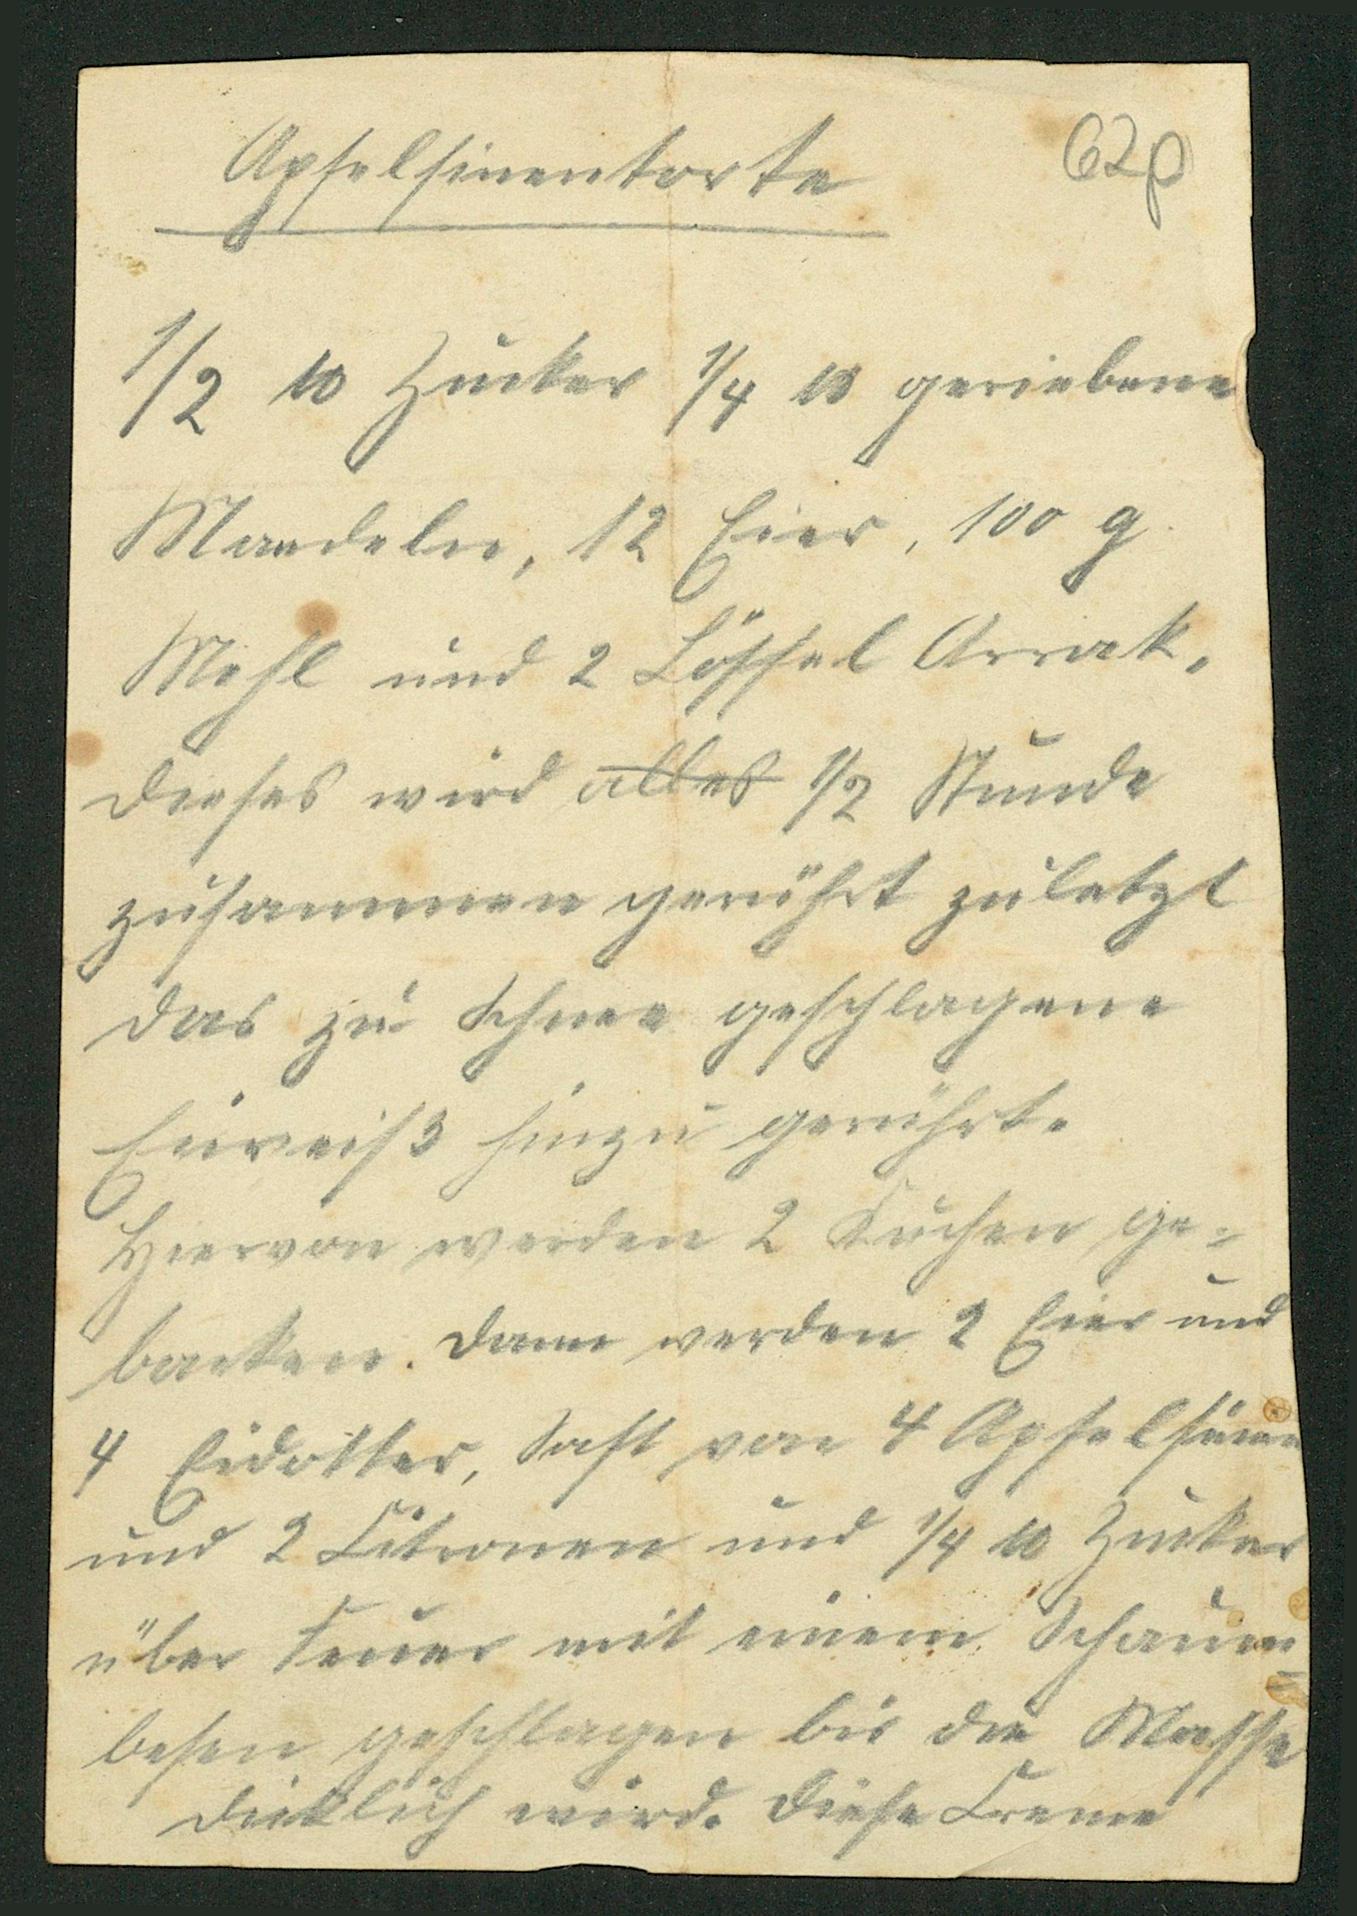 Apfelsinentorte
62p
1/2 ℔ Zucker 1/4 ℔ geriebene
Mandeln, 12 Eier, 100 g
Mehl und 2 Löffel Arrak.
Dieses wird alles 1/2 Stunde
zusammen gerührt zuletzt
das zu Schnee geschlagene
Eierweiß hinzu gerührt.
Hiervon werden 2 Kuchen ge-
backen. Dann werden 2 Eier und
4 Eidotter, Saft von 4 Apfelsinen
und 2 Citronen und 1/4 ℔ Zucker
über Feuer mit einem Schaum-
besen geschlagen bis die Masse
dicklich wird. Diese Creme